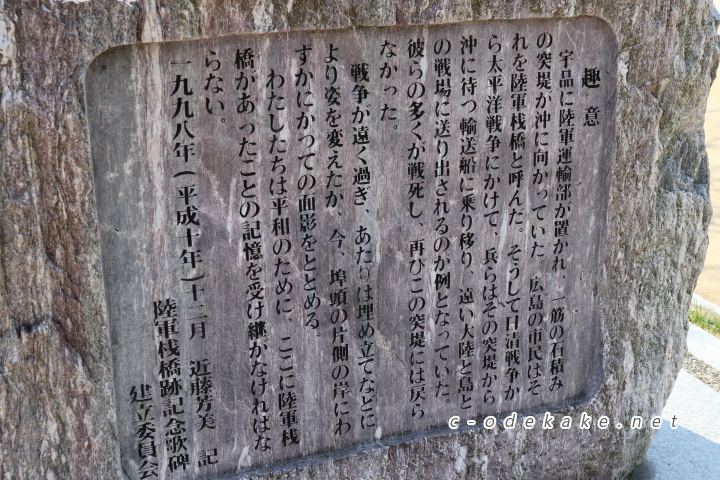 趣意
宇品に陸軍運輸部が置かれ、一筋の石積み
の突堤が沖に向かっていた 広島の市民はそ
れを陸軍桟橋と呼んだ。そうして日清戦争か
ら太平洋戦争にかけて、兵らはその突堤から
沖に待つ輸送船に乗り移り、遠い大陸と島と
の戦場に送り出されるのが例となっていた。
彼らの多くが戦死し、再びこの突堤には戻ら
なかった。
戦争が遠く過ぎ、あたりは埋め立てなどに
より姿を変えたが、今、埠頭の片側の岸にわ
ずかにかつての面影をとどめる。
わたしたちは平和のために、ここに陸軍桟
橋があったことの記憶を受け継がなければな
らない。
一九九八年(平成十年)十二月 近藤芳美 記
陸軍桟橋跡記念歌碑
建立委員会
c-odekake.net